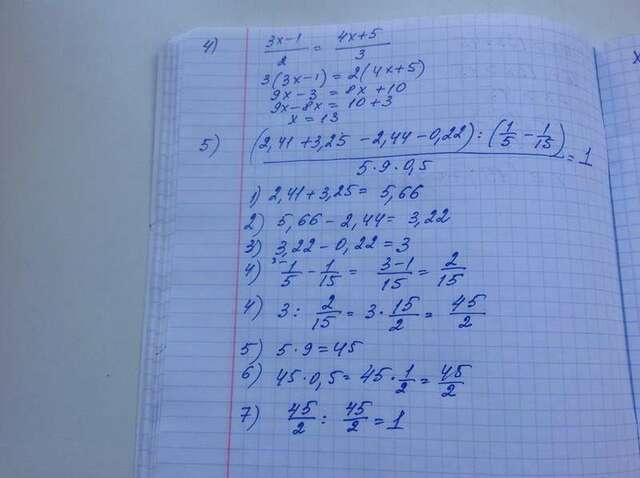 4) (3x-1)/2 = (4x+5)/3
3(3x-1) = 2(4x+5)
9x-3 = 8x+10
9x-8x = 10+3
x = 13
5) ((2,41+3,25-2,44-0,22):(1/5-1/15))/(5·9·0,5) = 1
1) 2,41+3,25 = 5,66
2) 5,66-2,44 = 3,22
3) 3,22-0,22 = 3
4) 3 1/5 - 1/15 = (3-1)/15 = 2/15
4) 3 : 2/15 = 3 · 15/2 = 45/2
5) 5·9 = 45
6) 45·0,5 = 45·1/2 = 45/2
7) 45/2 : 45/2 = 1
x